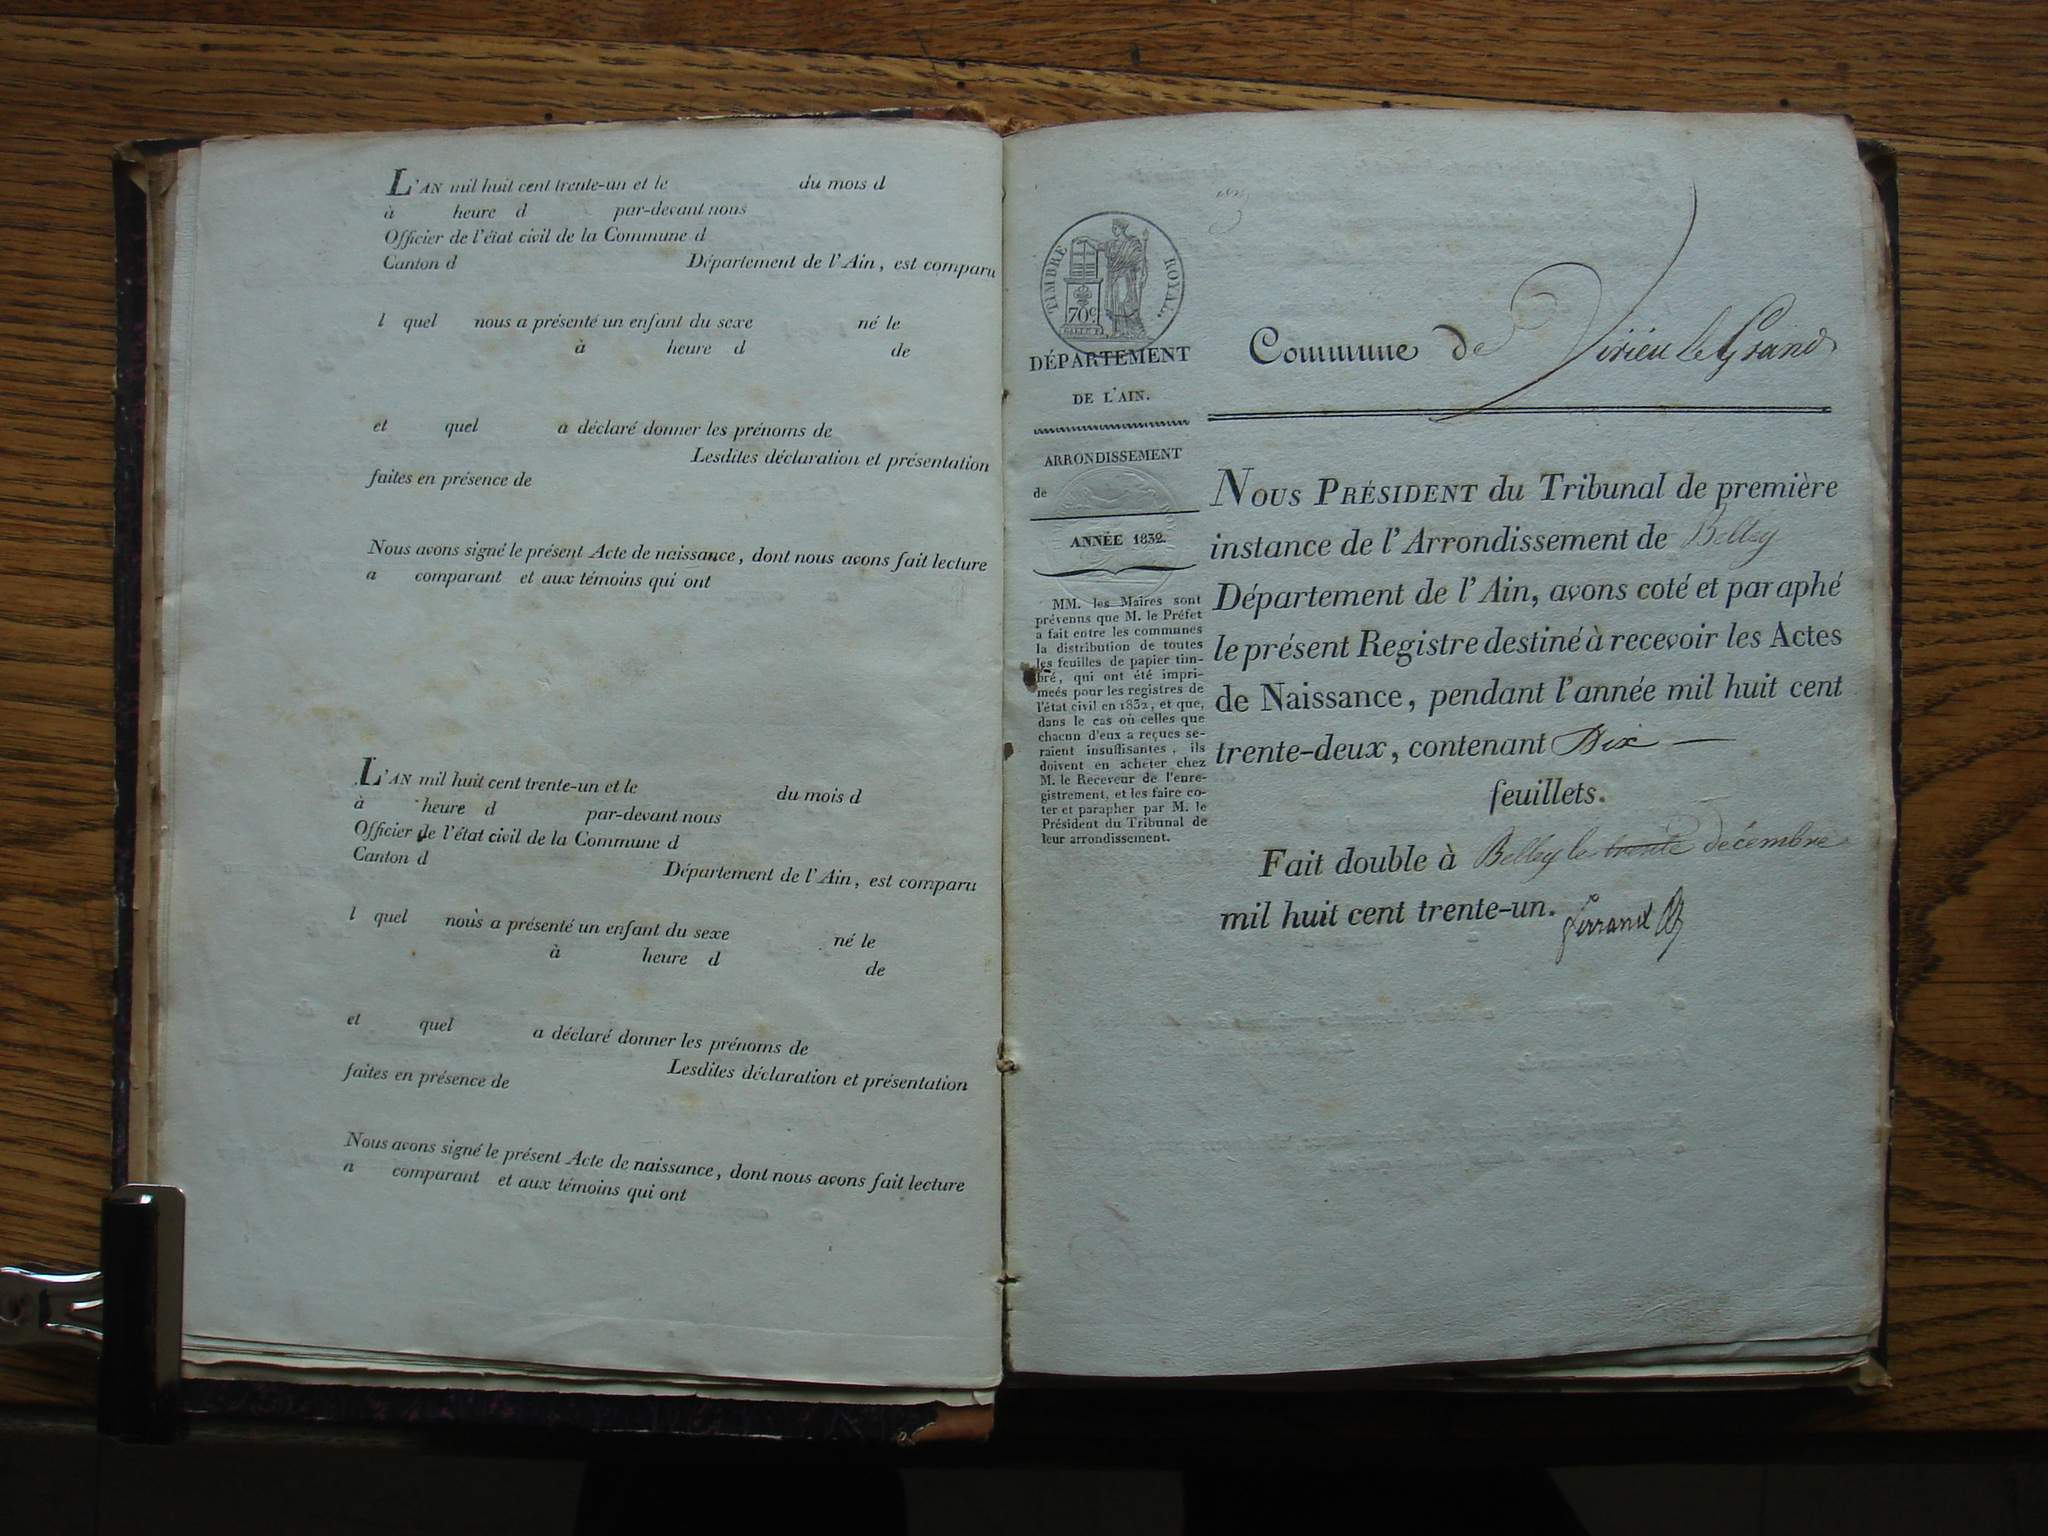 L'AN mil huit cent trente-un et le du mois d
à heure d par-devant nous
Officier de l'état civil de la Commune d
Canton d Département de l'Ain, est comparu
l quel nous a présenté un enfant du sexe né le
à heure d de
et quel a déclaré donner les prénoms de
Lesdites déclaration et présentation
faites en présence de
Nous avons signé le présent Acte de naissance, dont nous avons fait lecture
a comparant et aux témoins qui ont
L'AN mil huit cent trente-un et le du mois d
à heure d par-devant nous
Officier de l'état civil de la Commune d
Canton d Département de l'Ain, est comparu
l quel nous a présenté un enfant du sexe né le
à heure d de
et quel a déclaré donner les prénoms de
Lesdites déclaration et présentation
faites en présence de
Nous avons signé le présent Acte de naissance, dont nous avons fait lecture
a comparant et aux témoins qui ont
TIMBRE ROYAL.
70c
DÉPARTEMENT
DE L'AIN.
ARRONDISSEMENT
de
ANNÉE 1832.
MM. les Maires sont
prévenus que M. le Préfet
a fait entre les communes
la distribution de toutes
les feuilles de papier tim-
bré, qui ont été impri-
meés pour les registres de
l'état civil en 1832, et que,
dans le cas où celles que
chacun d'eux a reçues se-
raient insuffisantes, ils
doivent en acheter chez
M. le Receveur de l'enre-
gistrement, et les faire co-
ter et parapher par M. le
Président du Tribunal de
leur arrondissement.
Commune de Virieu le Grand
NOUS PRÉSIDENT du Tribunal de première
instance de l'Arrondissement de Belley
Département de l'Ain, avons coté et paraphé
le présent Registre destiné à recevoir les Actes
de Naissance, pendant l'année mil huit cent
trente-deux, contenant Dix
feuillets.
Fait double à Belley le trente décembre
mil huit cent trente-un. Ferrand